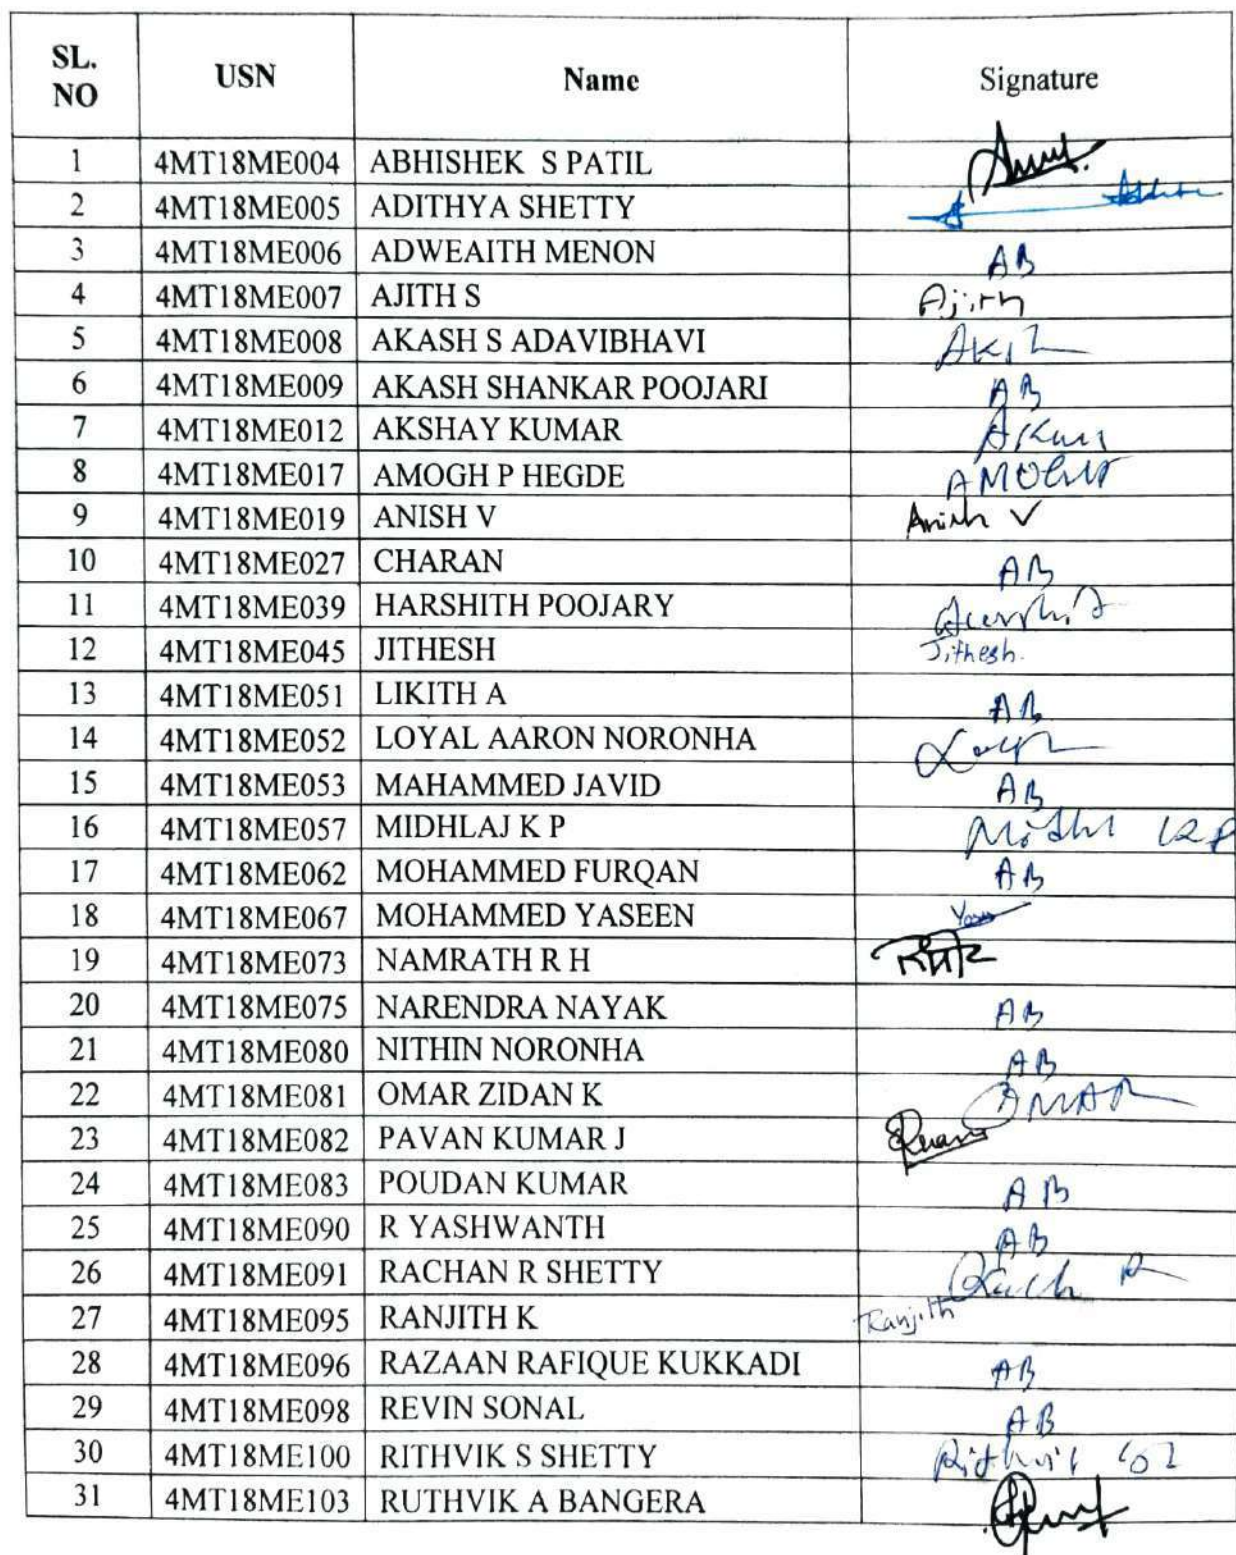 SL. NO USN Name Signature
1 4MT18ME004 ABHISHEK S PATIL
2 4MT18ME005 ADITHYA SHETTY
3 4MT18ME006 ADWEAITH MENON AB
4 4MT18ME007 AJITH S Ajith
5 4MT18ME008 AKASH S ADAVIBHAVI
6 4MT18ME009 AKASH SHANKAR POOJARI AB
7 4MT18ME012 AKSHAY KUMAR
8 4MT18ME017 AMOGH P HEGDE
9 4MT18ME019 ANISH V Anish V
10 4MT18ME027 CHARAN AB
11 4MT18ME039 HARSHITH POOJARY
12 4MT18ME045 JITHESH Jithesh.
13 4MT18ME051 LIKITH A AB
14 4MT18ME052 LOYAL AARON NORONHA
15 4MT18ME053 MAHAMMED JAVID AB
16 4MT18ME057 MIDHLAJ K P
17 4MT18ME062 MOHAMMED FURQAN AB
18 4MT18ME067 MOHAMMED YASEEN
19 4MT18ME073 NAMRATH R H
20 4MT18ME075 NARENDRA NAYAK AB
21 4MT18ME080 NITHIN NORONHA AB
22 4MT18ME081 OMAR ZIDAN K OMAR
23 4MT18ME082 PAVAN KUMAR J
24 4MT18ME083 POUDAN KUMAR AB
25 4MT18ME090 R YASHWANTH AB
26 4MT18ME091 RACHAN R SHETTY
27 4MT18ME095 RANJITH K Ranjith
28 4MT18ME096 RAZAAN RAFIQUE KUKKADI AB
29 4MT18ME098 REVIN SONAL AB
30 4MT18ME100 RITHVIK S SHETTY
31 4MT18ME103 RUTHVIK A BANGERA